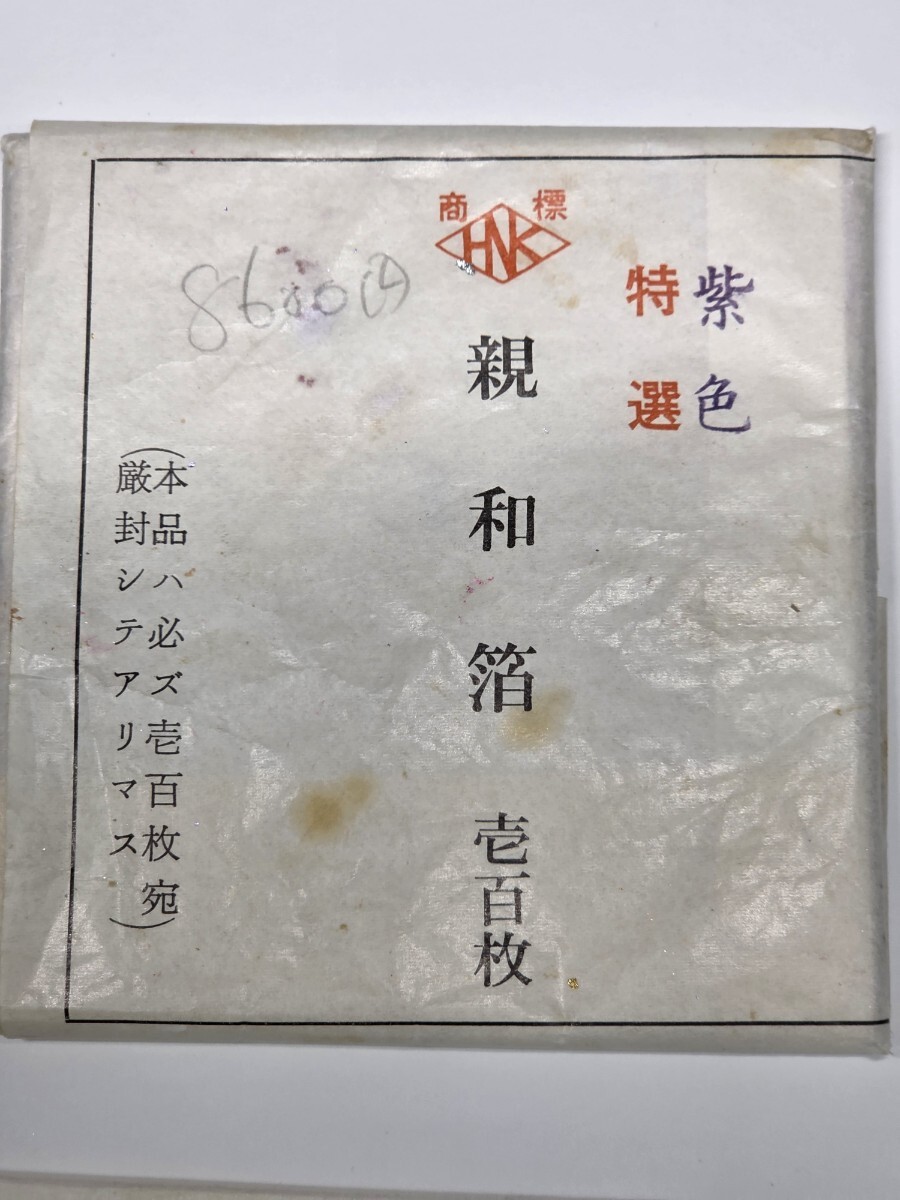 商標
HNK
紫色
特選
親和箔 壱百枚
(本品ハ必ズ壱百枚宛
厳封シテアリマス)